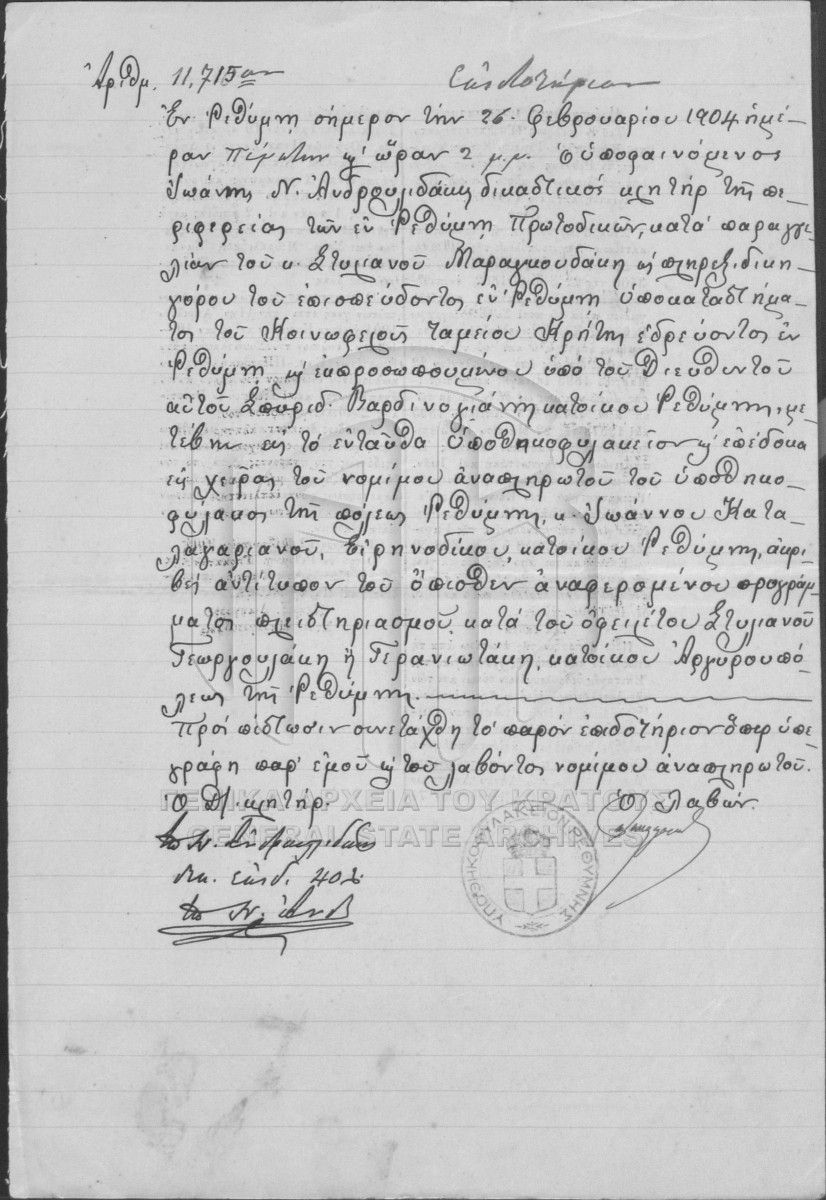 Ἀριθμ. 11,715ον Ἐπιδοτήριον
Ἐν Ρεθύμνῃ σήμερον τὴν 26 Φεβρουαρίου 1904 ἡμέ-
ραν Πέμπτην κ' ὥραν 2 μ.μ. ὁ ὑποφαινόμενος
Ἰωάννης Ν. Ἀνδρουλιδάκης δικαστικός κλητήρ τῆς πε-
ριφερείας τῶν ἐν Ρεθύμνῃ Πρωτοδικῶν, κατά παραγγε-
λίαν τοῦ κ. Στυλιανοῦ Μαραγκουδάκη ὡς πληρεξ. δικη-
γόρου τοῦ ἐπισπεύδοντος ἐν Ρεθύμνῃ ὑποκαταστήμα-
τος τοῦ Κοινωφελοῦς Ταμείου Κρήτης ἑδρεύοντος ἐν
Ρεθύμνῃ κ' ἐκπροσωπουμένου ὑπό τοῦ Διευθυντοῦ
αὐτοῦ Σπυρίδ. Βαρδινογιάννη κατοίκου Ρεθύμνης, με-
τέβην εἰς τό ἐνταῦθα Ὑποθηκοφυλακεῖον κ' ἐπέδοκα
εἰς χεῖρας τοῦ νομίμου ἀναπληρωτοῦ τοῦ ὑποθηκο-
φύλακος τῆς πόλεως Ρεθύμνης, κ. Ἰωάννου Κατα-
λαγαριανοῦ, Εἰρηνοδίκου, κατοίκου Ρεθύμνης, ἀκρι-
βές ἀντίτυπον τοῦ ὄπισθεν ἀναφερομένου προγράμ-
ματος πλειστηριασμοῦ κατά τοῦ ὀφειλέτου Στυλιανοῦ
Γεωργουλάκη ἤ Γερανιωτάκη, κατοίκου Ἀργυρουπό-
λεως τῆς Ρεθύμνης.
Πρός πίστωσιν συνετάχθη τό παρόν ἐπιδοτήριον ὅπερ ὑπε-
γράφη παρ' ἐμοῦ κ' τοῦ λαβόντος νομίμου ἀναπληρωτοῦ.
Ὁ Δ/. κλητήρ. Ὁ λαβών.
ΓΕΝΙΚΑ ΑΡΧΕΙΑ ΤΟΥ ΚΡΑΤΟΥΣ
GENERAL STATE ARCHIVES
Ἰω Ν. Ἀνδρουλιδάκης
ΥΠΟΘΗΚΟΦΥΛΑΚΕΙΟΝ ΡΕΘΥΜΝΗΣ